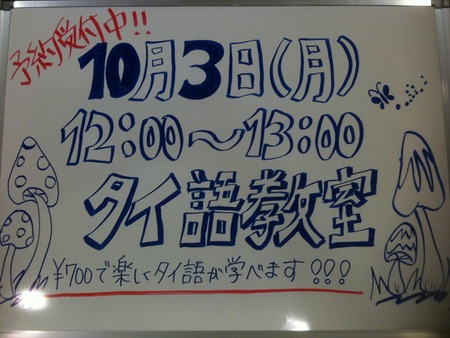 予約受付中!!
10月3日(月)
12:00〜13:00
タイ語教室
¥700で楽しくタイ語が学べます!!!